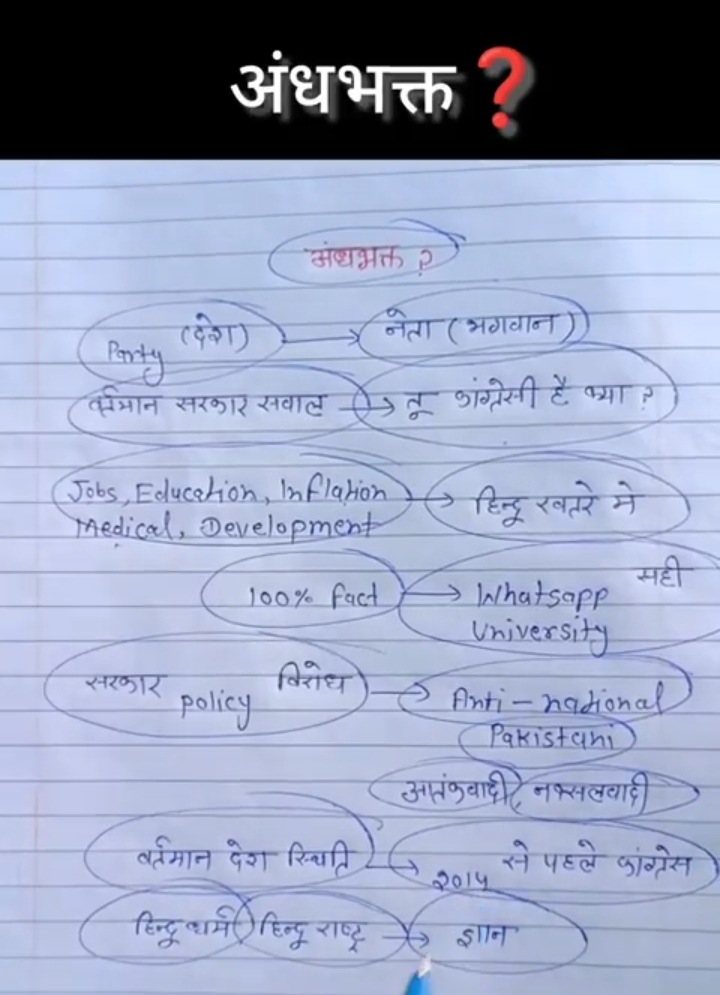 अंधभक्त❓
अंधभक्त ?
Party (देश) → नेता (भगवान)
वर्तमान सरकार सवाल → तू कांग्रेसी है क्या ?
Jobs, Education, Inflation → हिन्दू खतरे मे
Medical, Development
100% fact → Whatsapp सही
University
सरकार policy विरोध → Anti-national
Pakistani
आतंकवादी, नक्सलवादी
वर्तमान देश स्थिति → २०१४ से पहले कांग्रेस
हिन्दू धर्म हिन्दू राष्ट्र → ज्ञान